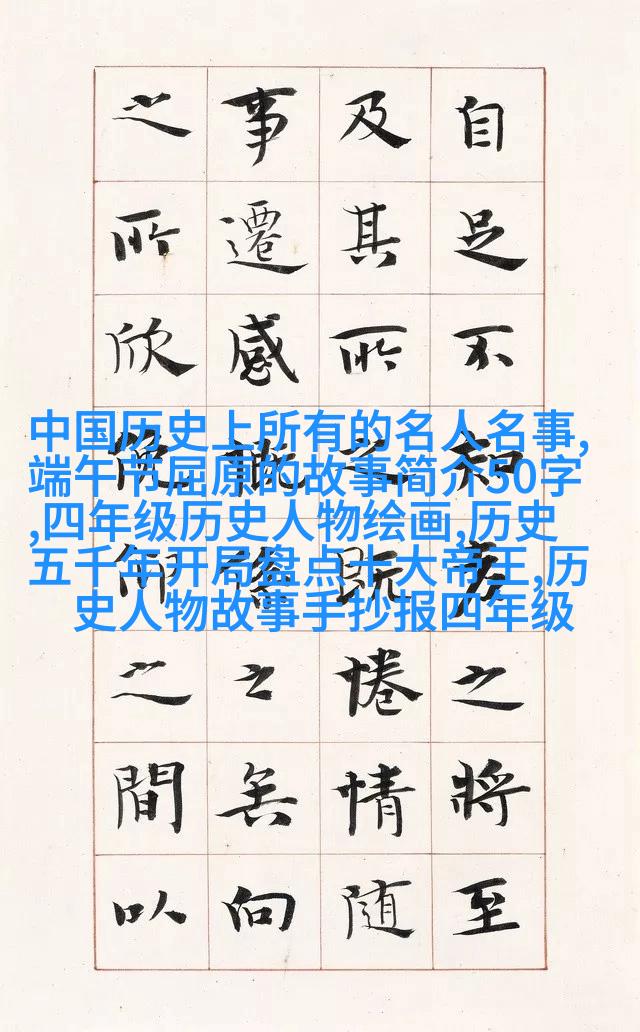 自足不知老之將至
及其所之既惓情随
事遷感慨係之矣向
之所欣俛仰之間以
中国历史上所有的名人名事,
端午节屈原的故事简介50字
,四年级历史人物绘画,历史
五千年开局盘点十大帝王,历
史人物故事手抄报四年级